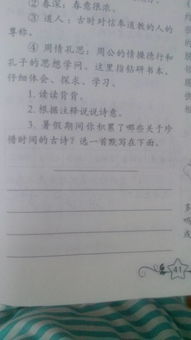 ② 春深：春意很浓。
③ 道人：古时对信奉道教的人的
尊称。
④ 周情孔思：周公的情操德行和
孔子的思想学问。这里指钻研书本、
仔细体会、探求、学习。
1. 读读背背。
2. 根据注释说说诗意。
3. 暑假期间你积累了哪些关于珍
惜时间的古诗？选一首默写在下面。
41